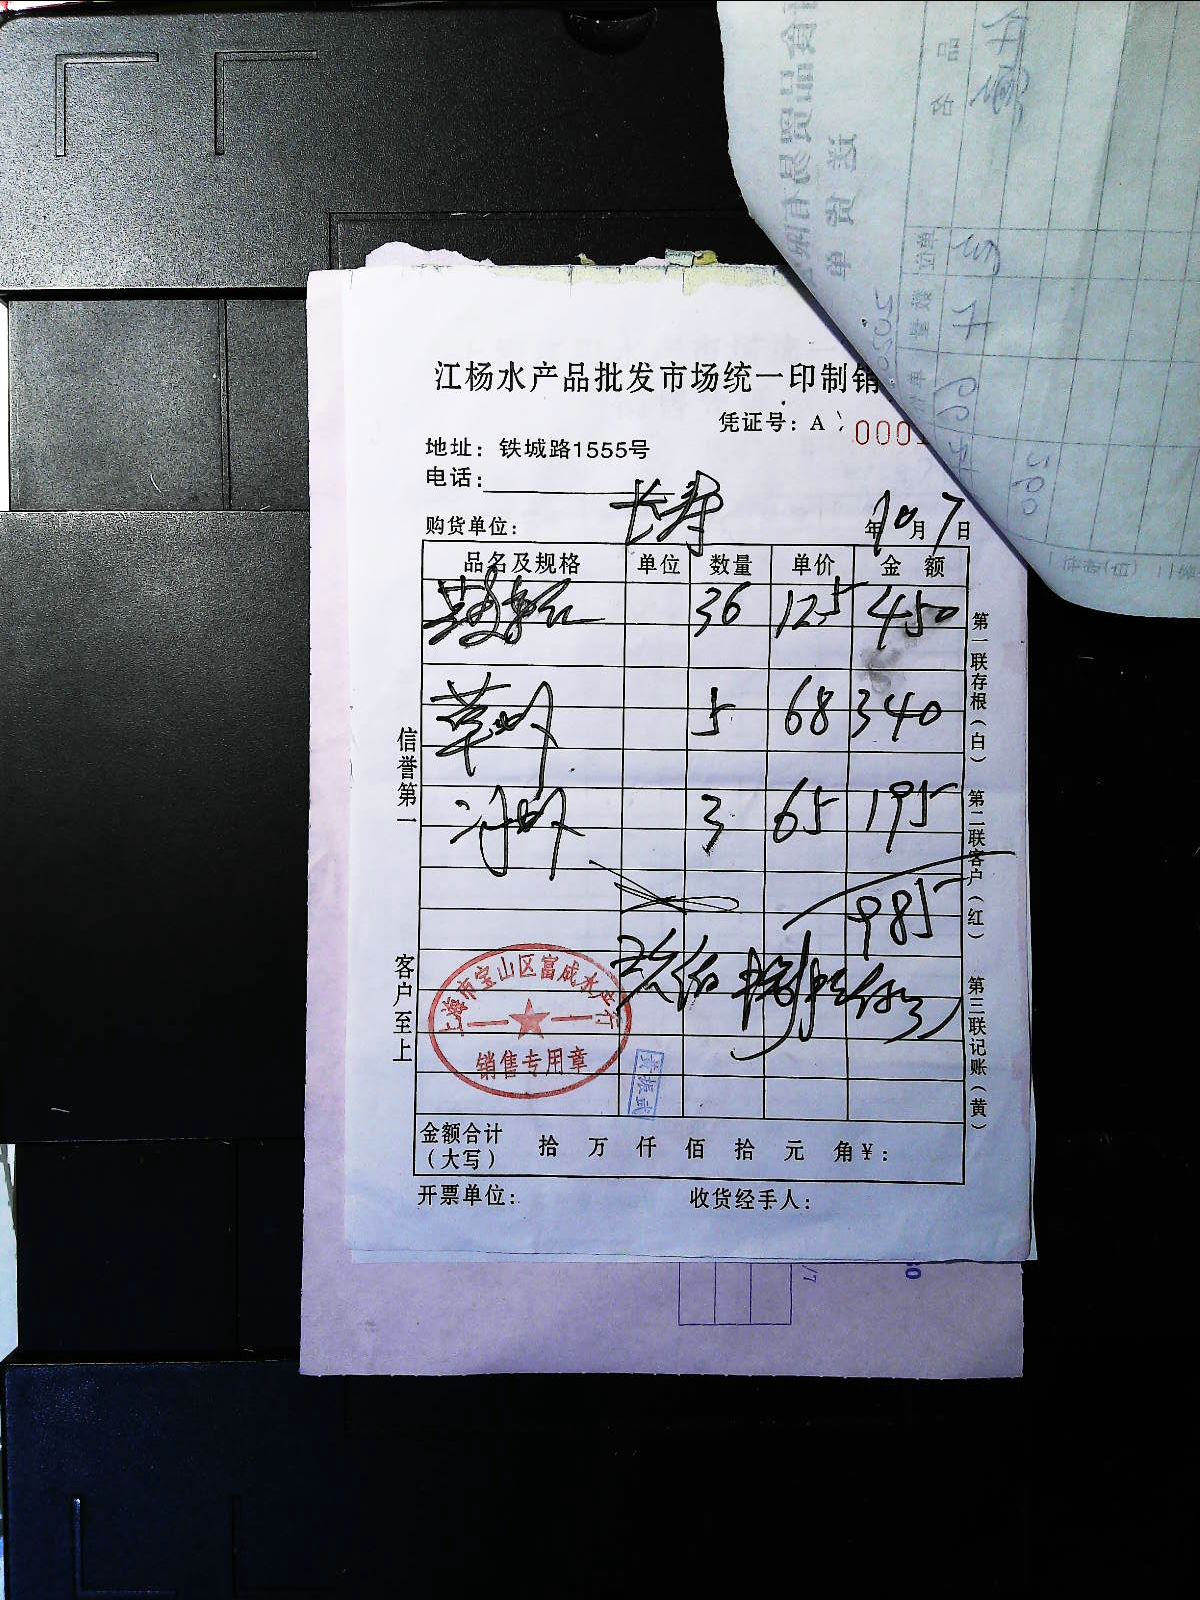 江杨水产品批发市场统一印制销
凭证号：A 0001
地址：铁城路1555号
电话：
购货单位： 长寿 年10月7日
品名及规格 单位 数量 单价 金额
36 125 450
草虾 5 68 340
3 65 195
985
玖佰捌拾伍元
上海市宝山区富成水产行
销售专用章
金额合计（大写） 拾 万 仟 佰 拾 元 角 ¥：
开票单位： 收货经手人：
信誉第一
客户至上
第一联存根（白）
第二联客户（红）
第三联记账（黄）